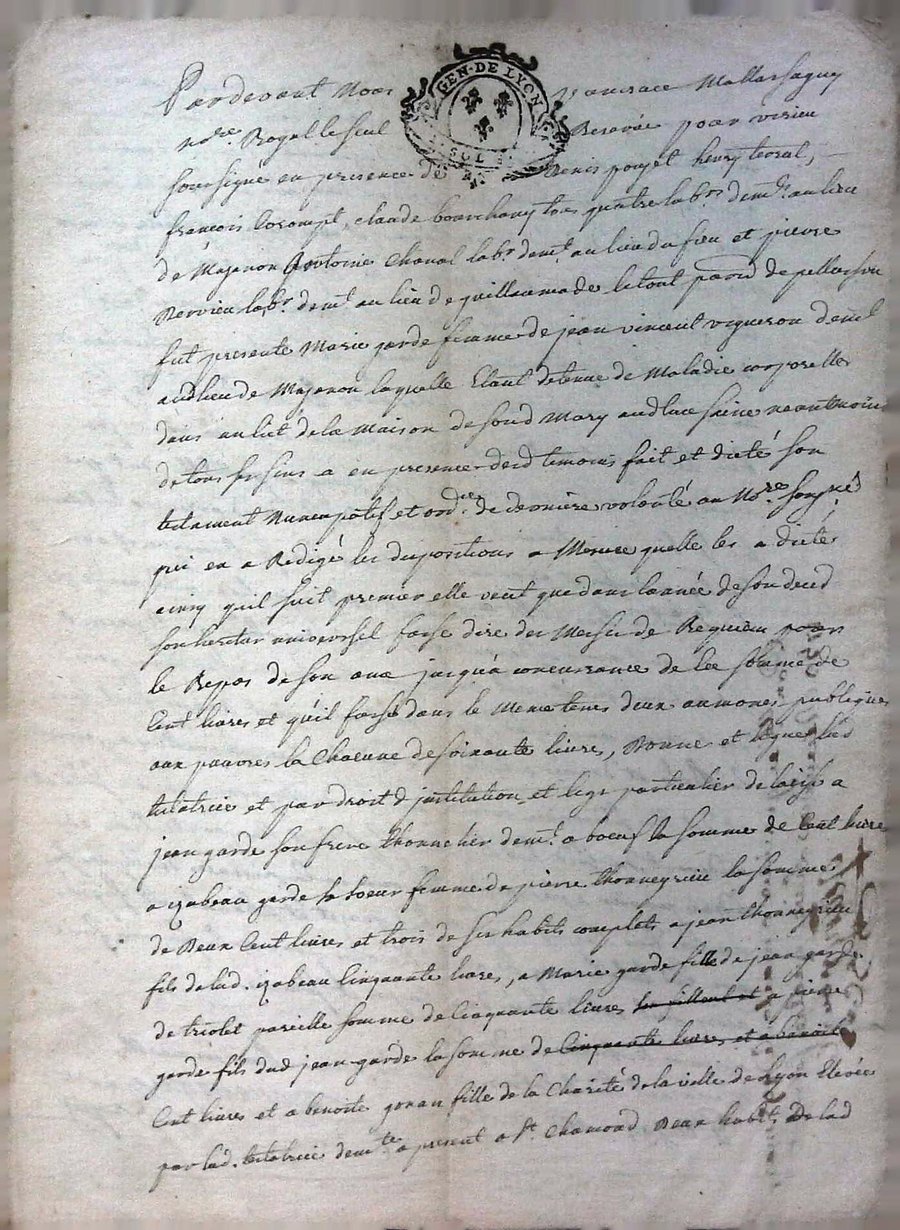 GEN. DE LYON
Pardevant Nous
no.re Royal le seul Reservée pour virieu
soussigné en presence de Denis poujet henry
françois Corompt, claude bonnchany tous quatre lab.rs dem.t au lieu
de Majenon Antoine Chaval lab.r dem.t au lieu du fieu et pierre
Dervieu lab.r demt au lieu de guillaumade le tout paroisse de pellussin
fut presente Marie garde femme de jean vincent vigneron demt
audt lieu de Majenon laquelle Etant detenue de Maladie corporelle
dans un lict de la Maison de sond Mary audt lieu saine neantmoins
de tous ses sins a en presence desd temoins fait et dicté son
testament Nuncupatif et ord.re de derniere volonté au No.re soussigné
qui en a Redigé les dispositions a Mesure quelle les a dictés
ainsy quil suit premier elle veut que dans l'année de son deced
son heritier universel fasse dire des Messes de Requiem pour
le Repos de son ame jusqu'a concurrance de la somme de
Cent livres et qu'il fasse dans le Meme tems deux aumones publiques
aux pauvres la Chacune de soixante livres, Donne et legue lad
testatrice et par droit d institution et legs particulier delaisse a
jean garde son frere thonnelier demt a boeuf la somme de Cent livres
a izabeau garde sa soeur femme de pierre thoneyrieu la somme
de Deux Cent livres et trois de ses habits complets a jean thoneyrieu
fils de lad. izabeau Cinquante livres, a Marie garde fille de jean garde
de triolet pareille somme de Cinquante livres a pierre
garde fils dud jean garde la somme de Cinquante livres et a benoite
Cent livres et a benoite goran fille de la Charité de la ville de Lyon Elevée
par lad. testatrice dem.te a present a St. Chamond Deux habits De lad